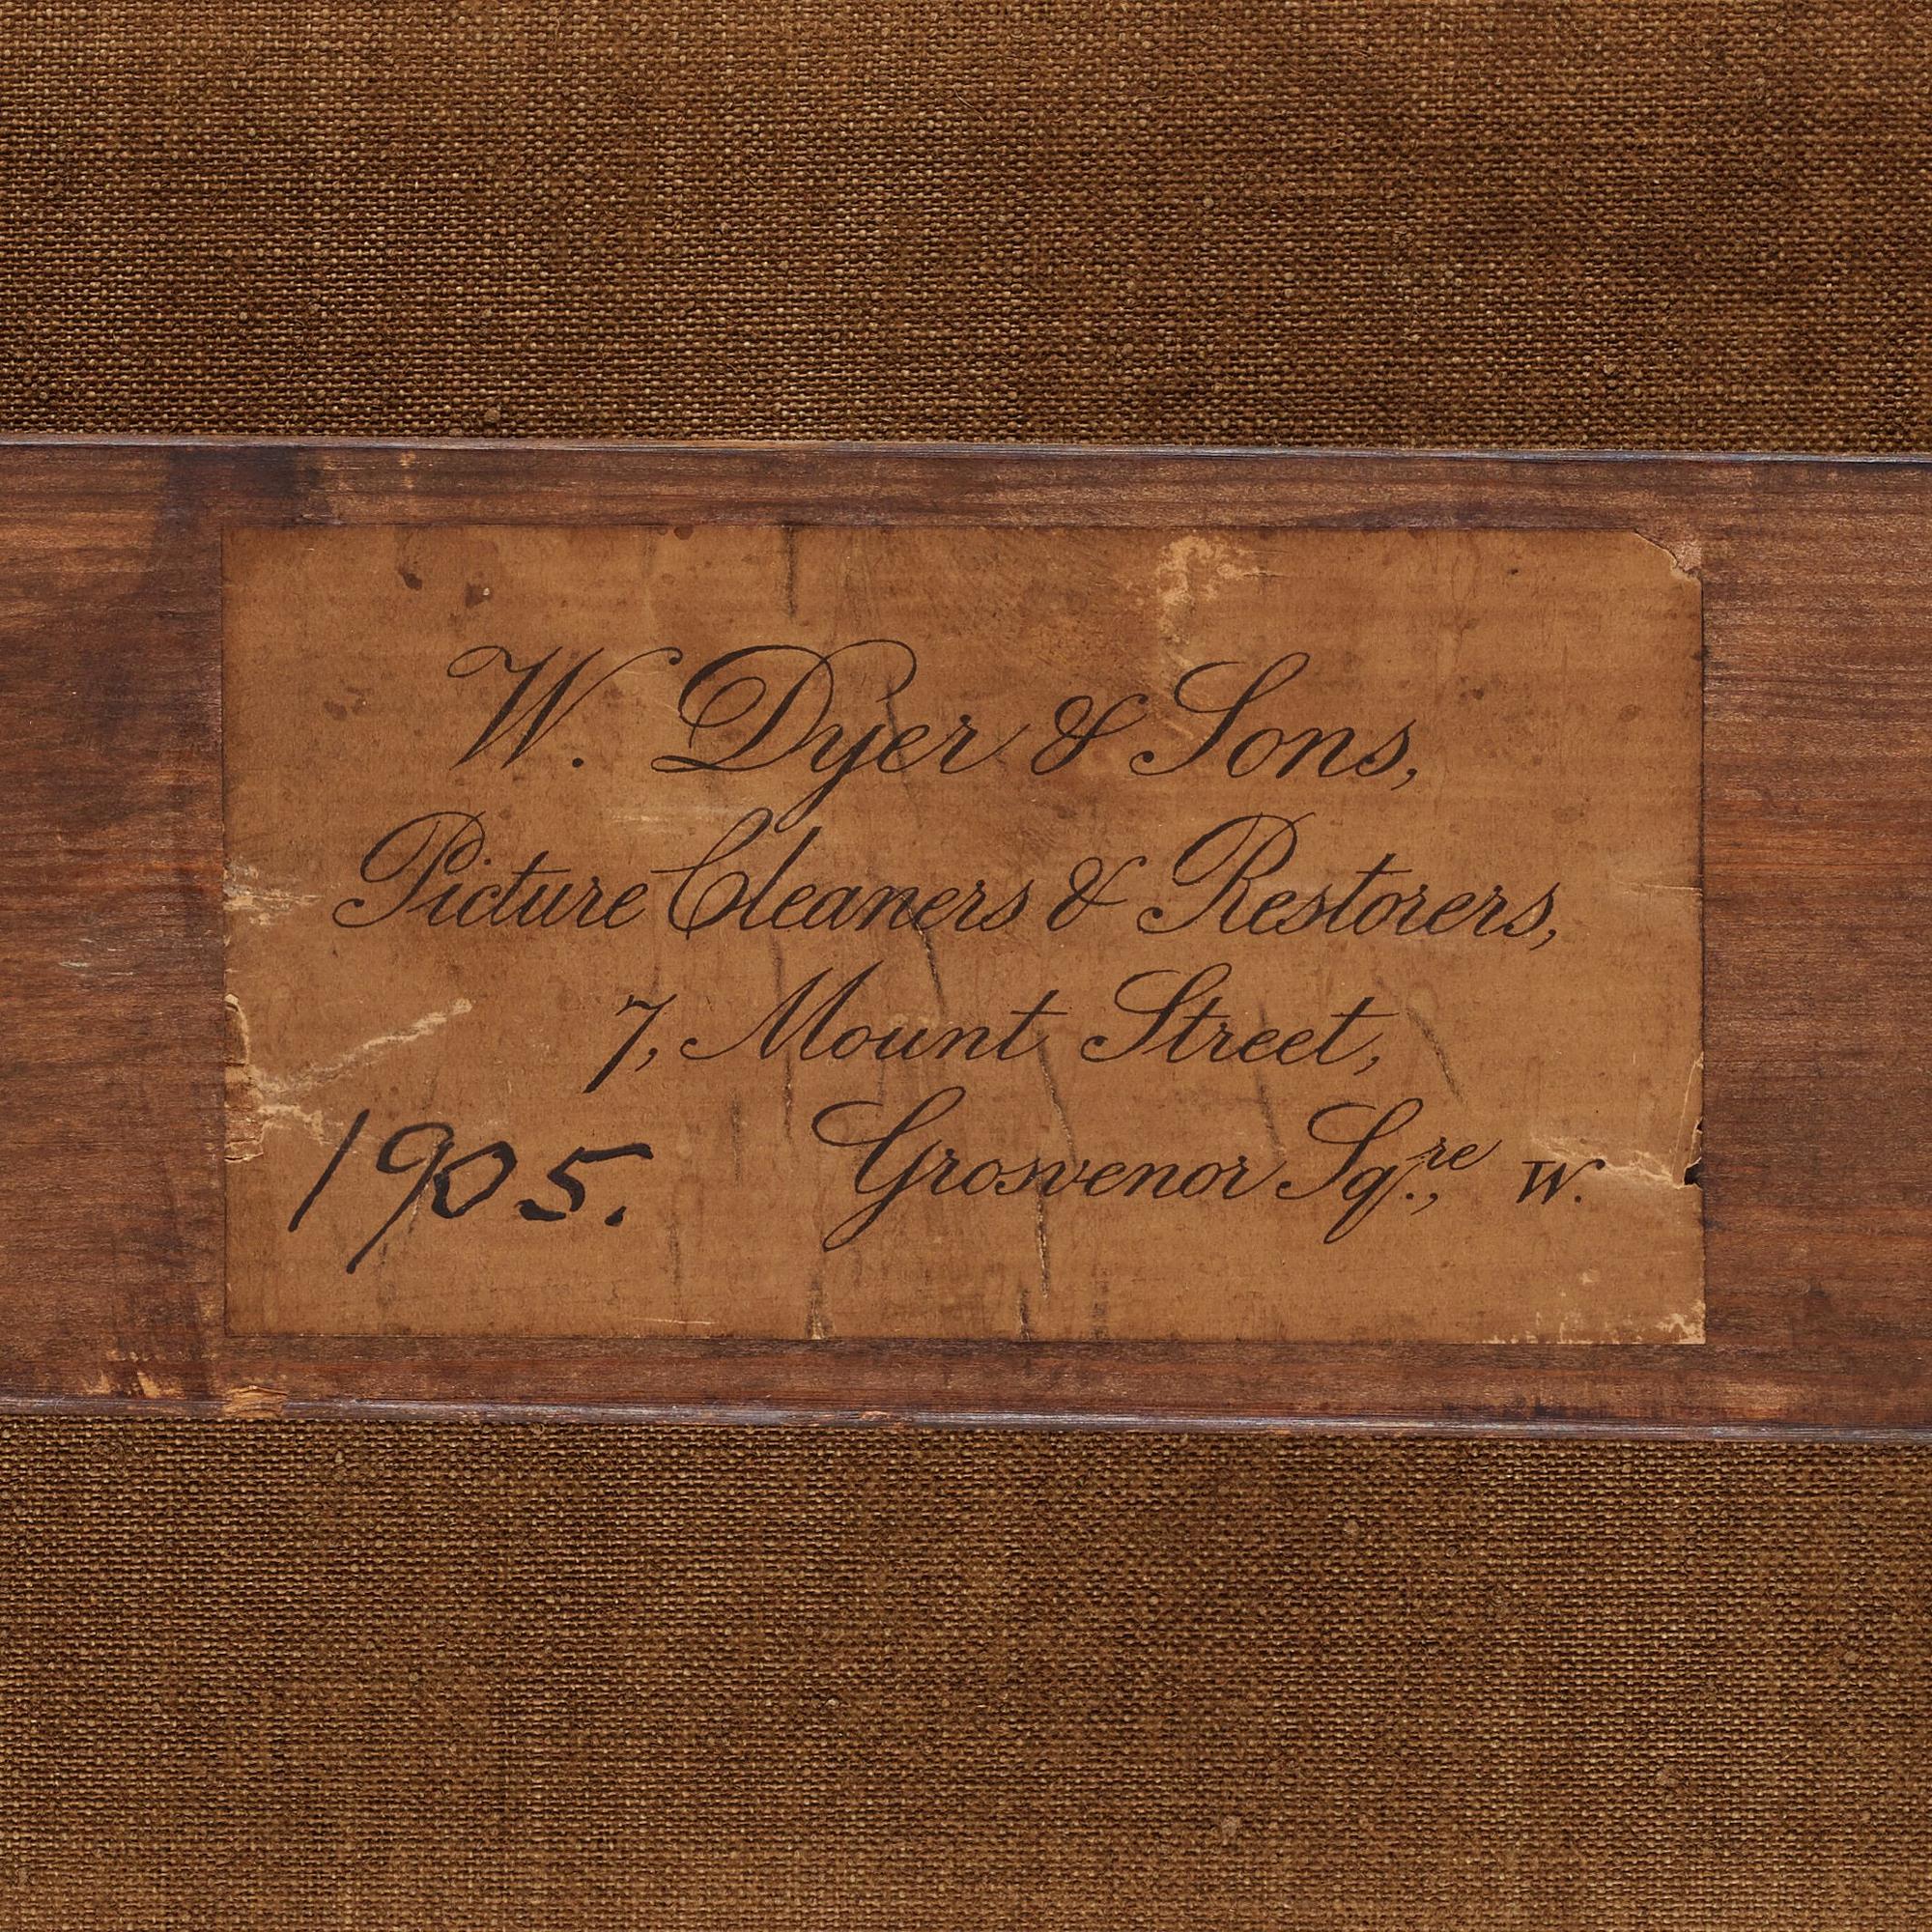 W. Dyer & Sons,
Picture Cleaners & Restorers,
7, Mount Street,
Grosvenor Sq.re, W.
1905.